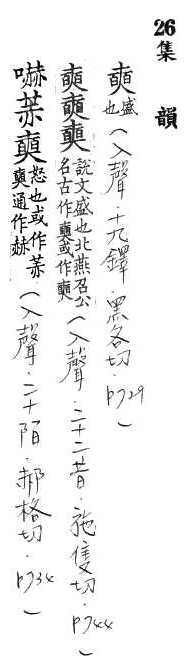 26 集韻
奭 盛也 (入聲.十九鐸.黑各切.p729)
奭奭奭 說文盛也北燕召公名古作奭或作奭 (入聲.二十二昔.施隻切.p744)
嚇奭 怒也或作奭通作赫 (入聲.二十陌.郝格切.p734)